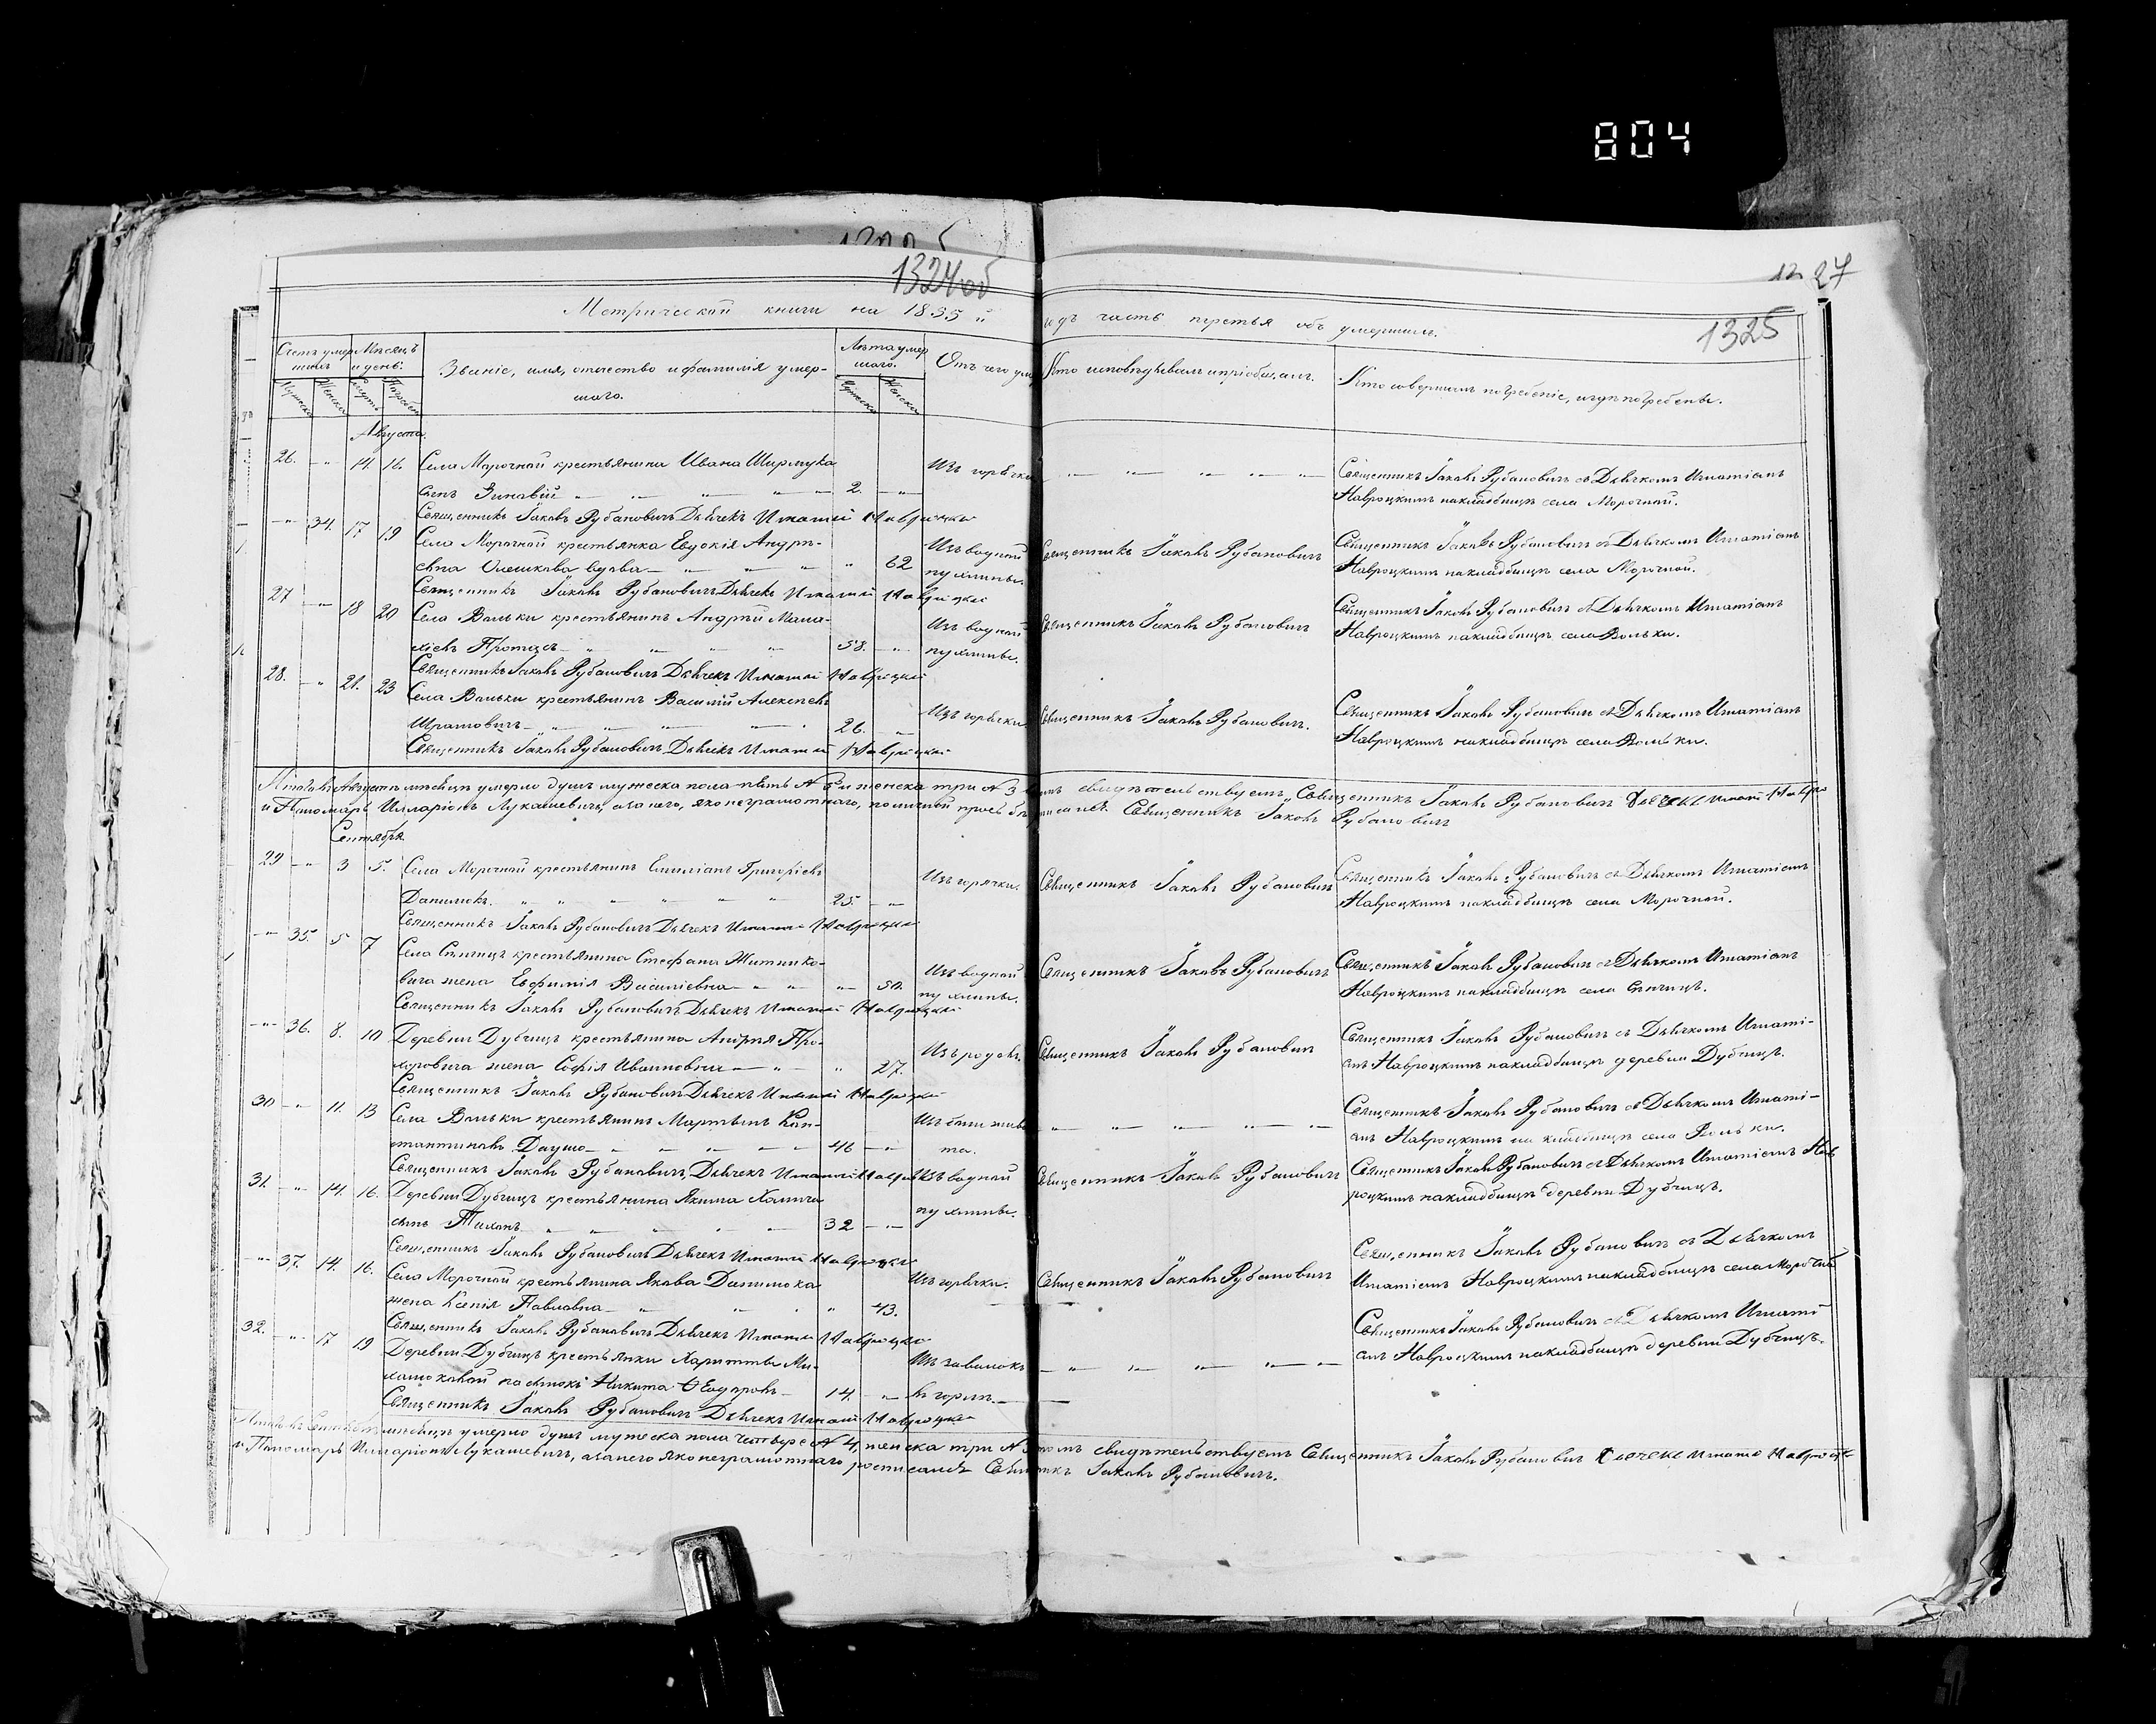 804
1324 об
27
1325
Метрической книги на 1835 й
годъ часть третья объ умершихъ.
Счетъ умершихъ
Мѣсяцъ и день.
Званіе, имя, отчество и фамилія умершаго.
Лѣта умершаго.
Отъ чего умеръ
Кто исповѣдывалъ и пріобщалъ.
Кто совершилъ погребеніе, и гдѣ погребены.
Мужеска Женска Смерть Погребен. Мужеска Женска
Августа
26. — „ 14. 16. Села Морочной крестьянина Ивана Ширмука
сынъ Зиновій — „ — „ — 2. — „ Изъ горячки
Священникъ Іаковъ Рубановичъ съ Дьячкомъ Игнатіемъ
Навроцкимъ на кладбищѣ села Морочной.
Священникъ Іаковъ Рубановичъ Дьячекъ Игнатій Навроцкій
— „ 34. 17 19 Села Морочной крестьянка Евдокія Андри-
евна Олешкова вдова — „ — „ „ 62 Изъ водяной пухлины.
Священникъ Іаковъ Рубановичъ
Священникъ Іаковъ Рубановичъ съ Дьячкомъ Игнатіемъ
Навроцкимъ на кладбищѣ села Морочной.
Священникъ Іаковъ Рубановичъ Дьячекъ Игнатій Навроцкій
27 — „ 18 20 Села Вольки крестьянинъ Андрей Мала-
хіевъ Протасъ — „ — „ 58. — „ Изъ водяной пухлины.
Священникъ Іаковъ Рубановичъ
Священникъ Іаковъ Рубановичъ съ Дьячкомъ Игнатіемъ
Навроцкимъ на кладбищѣ села Вольки.
Священникъ Іаковъ Рубановичъ Дьячекъ Игнатій Навроцкій
28. — „ 21. 23 Села Вольки крестьянинъ Василій Алексеевъ
— „ — „ 26. — „ Изъ горячки
Священникъ Іаковъ Рубановичъ.
Священникъ Іаковъ Рубановичъ съ Дьячкомъ Игнатіемъ
Навроцкимъ на кладбищѣ села Вольки.
Священникъ Іаковъ Рубановичъ Дьячекъ Игнатій Навроцкій
Августѣ мѣсяцѣ умерло душъ мужеска пола пять № 5 и женска три № 3 свидѣтельствуемъ, Священникъ Іаковъ Рубановичъ Дьячекъ Игнатій Навро
и Пономарь Илларіонъ Лукашевичъ, а за него, яко неграмотнаго, по личной прозьбѣ Священникъ Іаковъ Рубановичъ
Сентября
29 — „ 3 5. Села Морочной крестьянинъ Емиліанъ Григоріевъ
Данилюкъ. — „ — „ 25. — „ Изъ горячки.
Священникъ Іаковъ Рубановичъ
Священникъ Іаковъ Рубановичъ съ Дьячкомъ Игнатіемъ
Навроцкимъ на кладбищѣ села Морочной.
Священникъ Іаковъ Рубановичъ Дьячекъ Игнатій Навроцкій
— „ 35. 5 7 Села Сѣнчицъ крестьянина Стефана Житнико-
вича жена Евфимія Василіевна — „ — „ 50. Изъ водяной пухлины.
Священникъ Іаковъ Рубановичъ
Священникъ Іаковъ Рубановичъ съ Дьячкомъ Игнатіемъ
Навроцкимъ на кладбищѣ села Сѣнчицъ.
Священникъ Іаковъ Рубановичъ Дьячекъ Игнатій Навроцкій
— „ 36. 8. 10 Деревни Дубчицъ крестьянина Андрея Про-
хоровича жена Софія Ивановна — „ — „ 27. Изъ родовъ.
Священникъ Іаковъ Рубановичъ
Священникъ Іаковъ Рубановичъ съ Дьячкомъ Игнаті-
емъ Навроцкимъ на кладбищѣ деревни Дубчицъ.
Священникъ Іаковъ Рубановичъ Дьячекъ Игнатій Навроцкій
30 — „ 11. 13 Села Вольки крестьянинъ Мартынъ Кон-
стантиновъ — „ — „ 46 — „ Изъ боли живо
та.
Священникъ Іаковъ Рубановичъ съ Дьячкомъ Игнаті-
емъ Навроцкимъ на кладбищѣ села Вольки.
Священникъ Іаковъ Рубановичъ Дьячекъ Игнатій Навроцкій
31. — „ 14. 16. Деревни Дубчицъ крестьянина Якима Хомича
сынъ Тихонъ — „ — „ 32 — „ Изъ водяной пухлины.
Священникъ Іаковъ Рубановичъ
Священникъ Іаковъ Рубановичъ съ Дьячкомъ Игнатіемъ Нав
роцкимъ на кладбищѣ деревни Дубчицъ.
Священникъ Іаковъ Рубановичъ Дьячекъ Игнатій Навроцкій
— „ 37. 14. 16. Села Морочной крестьянина Якова Данилюка
жена Ксенія Павловна — „ — „ 43. Изъ горячки.
Священникъ Іаковъ Рубановичъ
Священникъ Іаковъ Рубановичъ съ Дьячкомъ
Игнатіемъ Навроцкимъ на кладбищѣ села Морочной
Священникъ Іаковъ Рубановичъ Дьячекъ Игнатій Навроцкій
32. — „ 17 19 Деревни Дубчицъ крестьянки Харитины Ми-
Никита Ѳеодоровъ — 14. — „ Изъ завалокъ въ горлѣ. —
Священникъ Іаковъ Рубановичъ съ Дьячкомъ Игнаті
емъ Навроцкимъ на кладбищѣ деревни Дубчицъ.
Священникъ Іаковъ Рубановичъ Дьячекъ Игнатій Навроцкій
мѣсяцѣ умерло душъ мужеска пола четверо № 4, женска три № свидѣтельствуемъ Священникъ Іаковъ Рубановичъ Дьячекъ Игнатій Навроц
и Пономарь Илларіонъ Лукашевичъ, а за него яко неграмотнаго росписался Священникъ Іаковъ Рубановичъ.